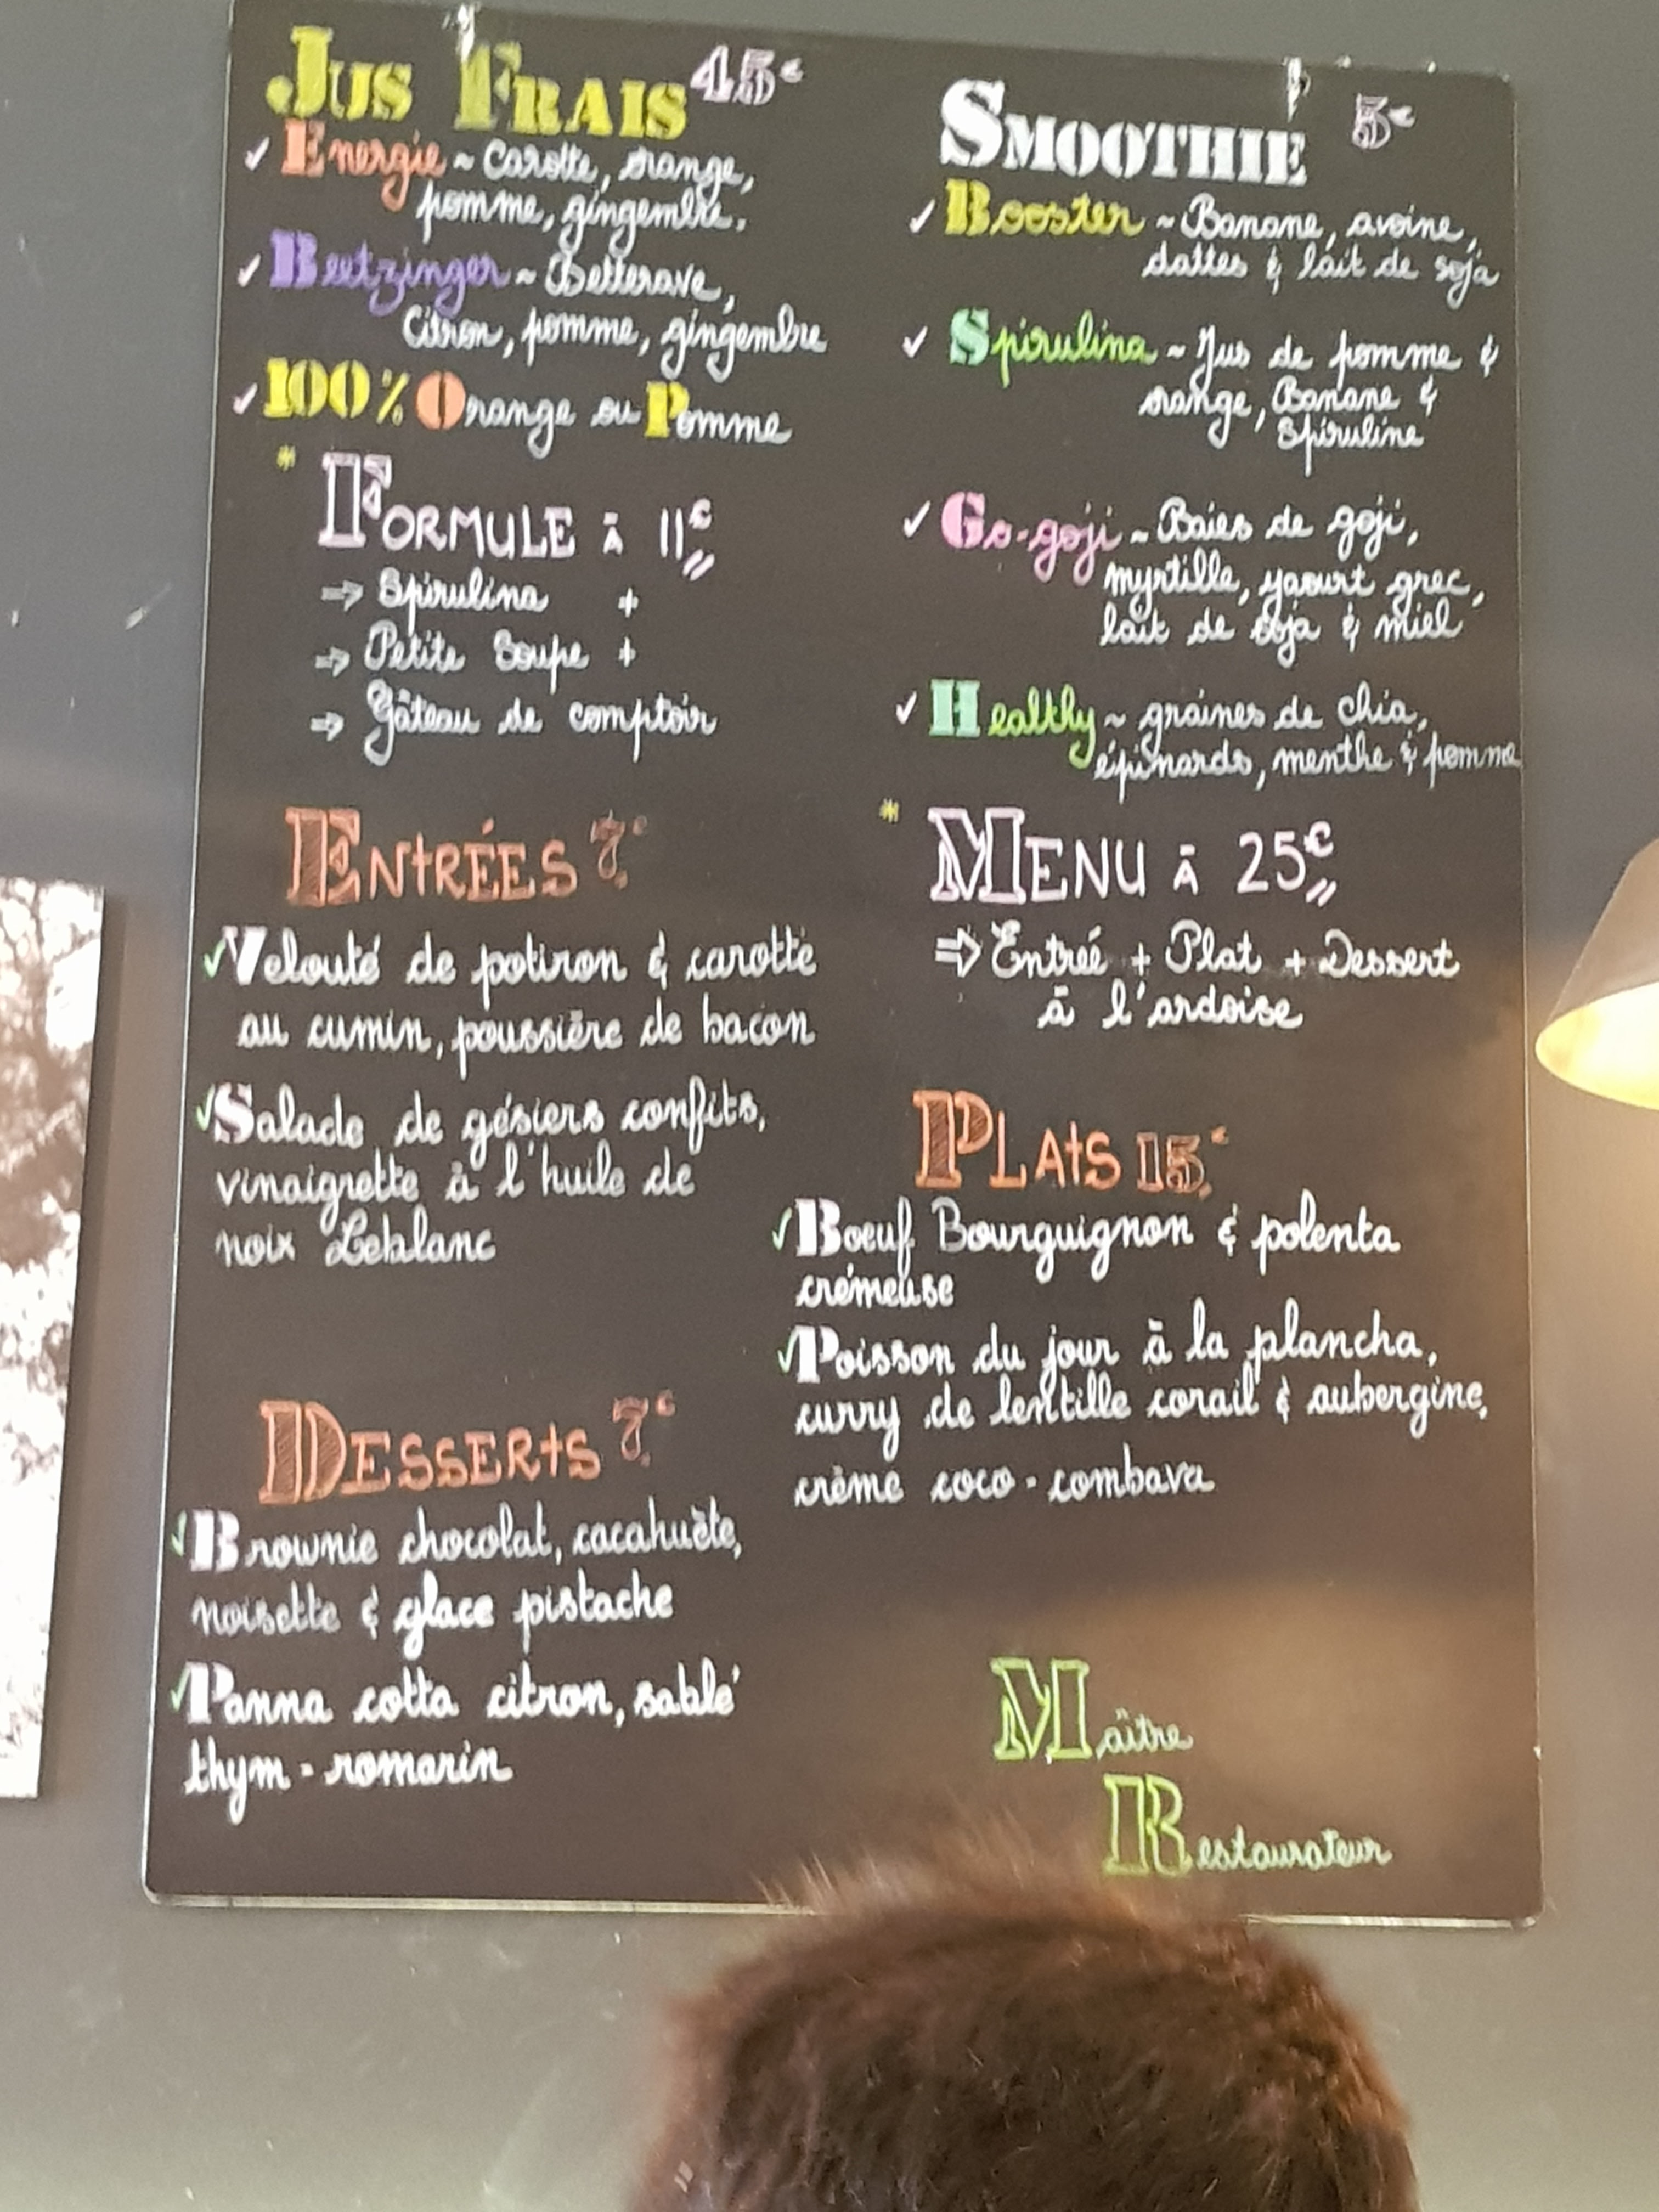 Jus Frais 45€
✓ Energie ~ Carotte, orange,
pomme, gingembre.
✓ Beetzinger ~ Betterave,
Citron, pomme, gingembre
✓ 100% Orange ou Pomme
* Formule à 11€
⇒ Spirulina +
⇒ Petite Soupe +
⇒ Gâteau de comptoir
Entrées 7€
✓ Velouté de potiron & carotte
au cumin, poussière de bacon
✓ Salade de gésiers confits,
vinaigrette à l'huile de
noix Leblanc
Desserts 7€
✓ Brownie chocolat, cacahuète,
noisette & glace pistache
✓ Panna cotta citron, sablé
thym - romarin
Smoothie 5€
✓ Booster ~ Banane, avoine,
dattes & lait de soja
✓ Spirulina ~ Jus de pomme &
orange, Banane &
Spiruline
✓ Go-goji ~ Baies de goji,
myrtille, yaourt grec,
lait de soja & miel
✓ Healthy ~ graines de chia,
épinards, menthe & pomme
* Menu à 25€
⇒ Entreé + Plat + Dessert
à l'ardoise
Plats 15€
✓ Boeuf Bourguignon & polenta
crémeuse
✓ Poisson du jour à la plancha,
curry de lentille corail & aubergine,
crème coco - combava
Maître
Restaurateur